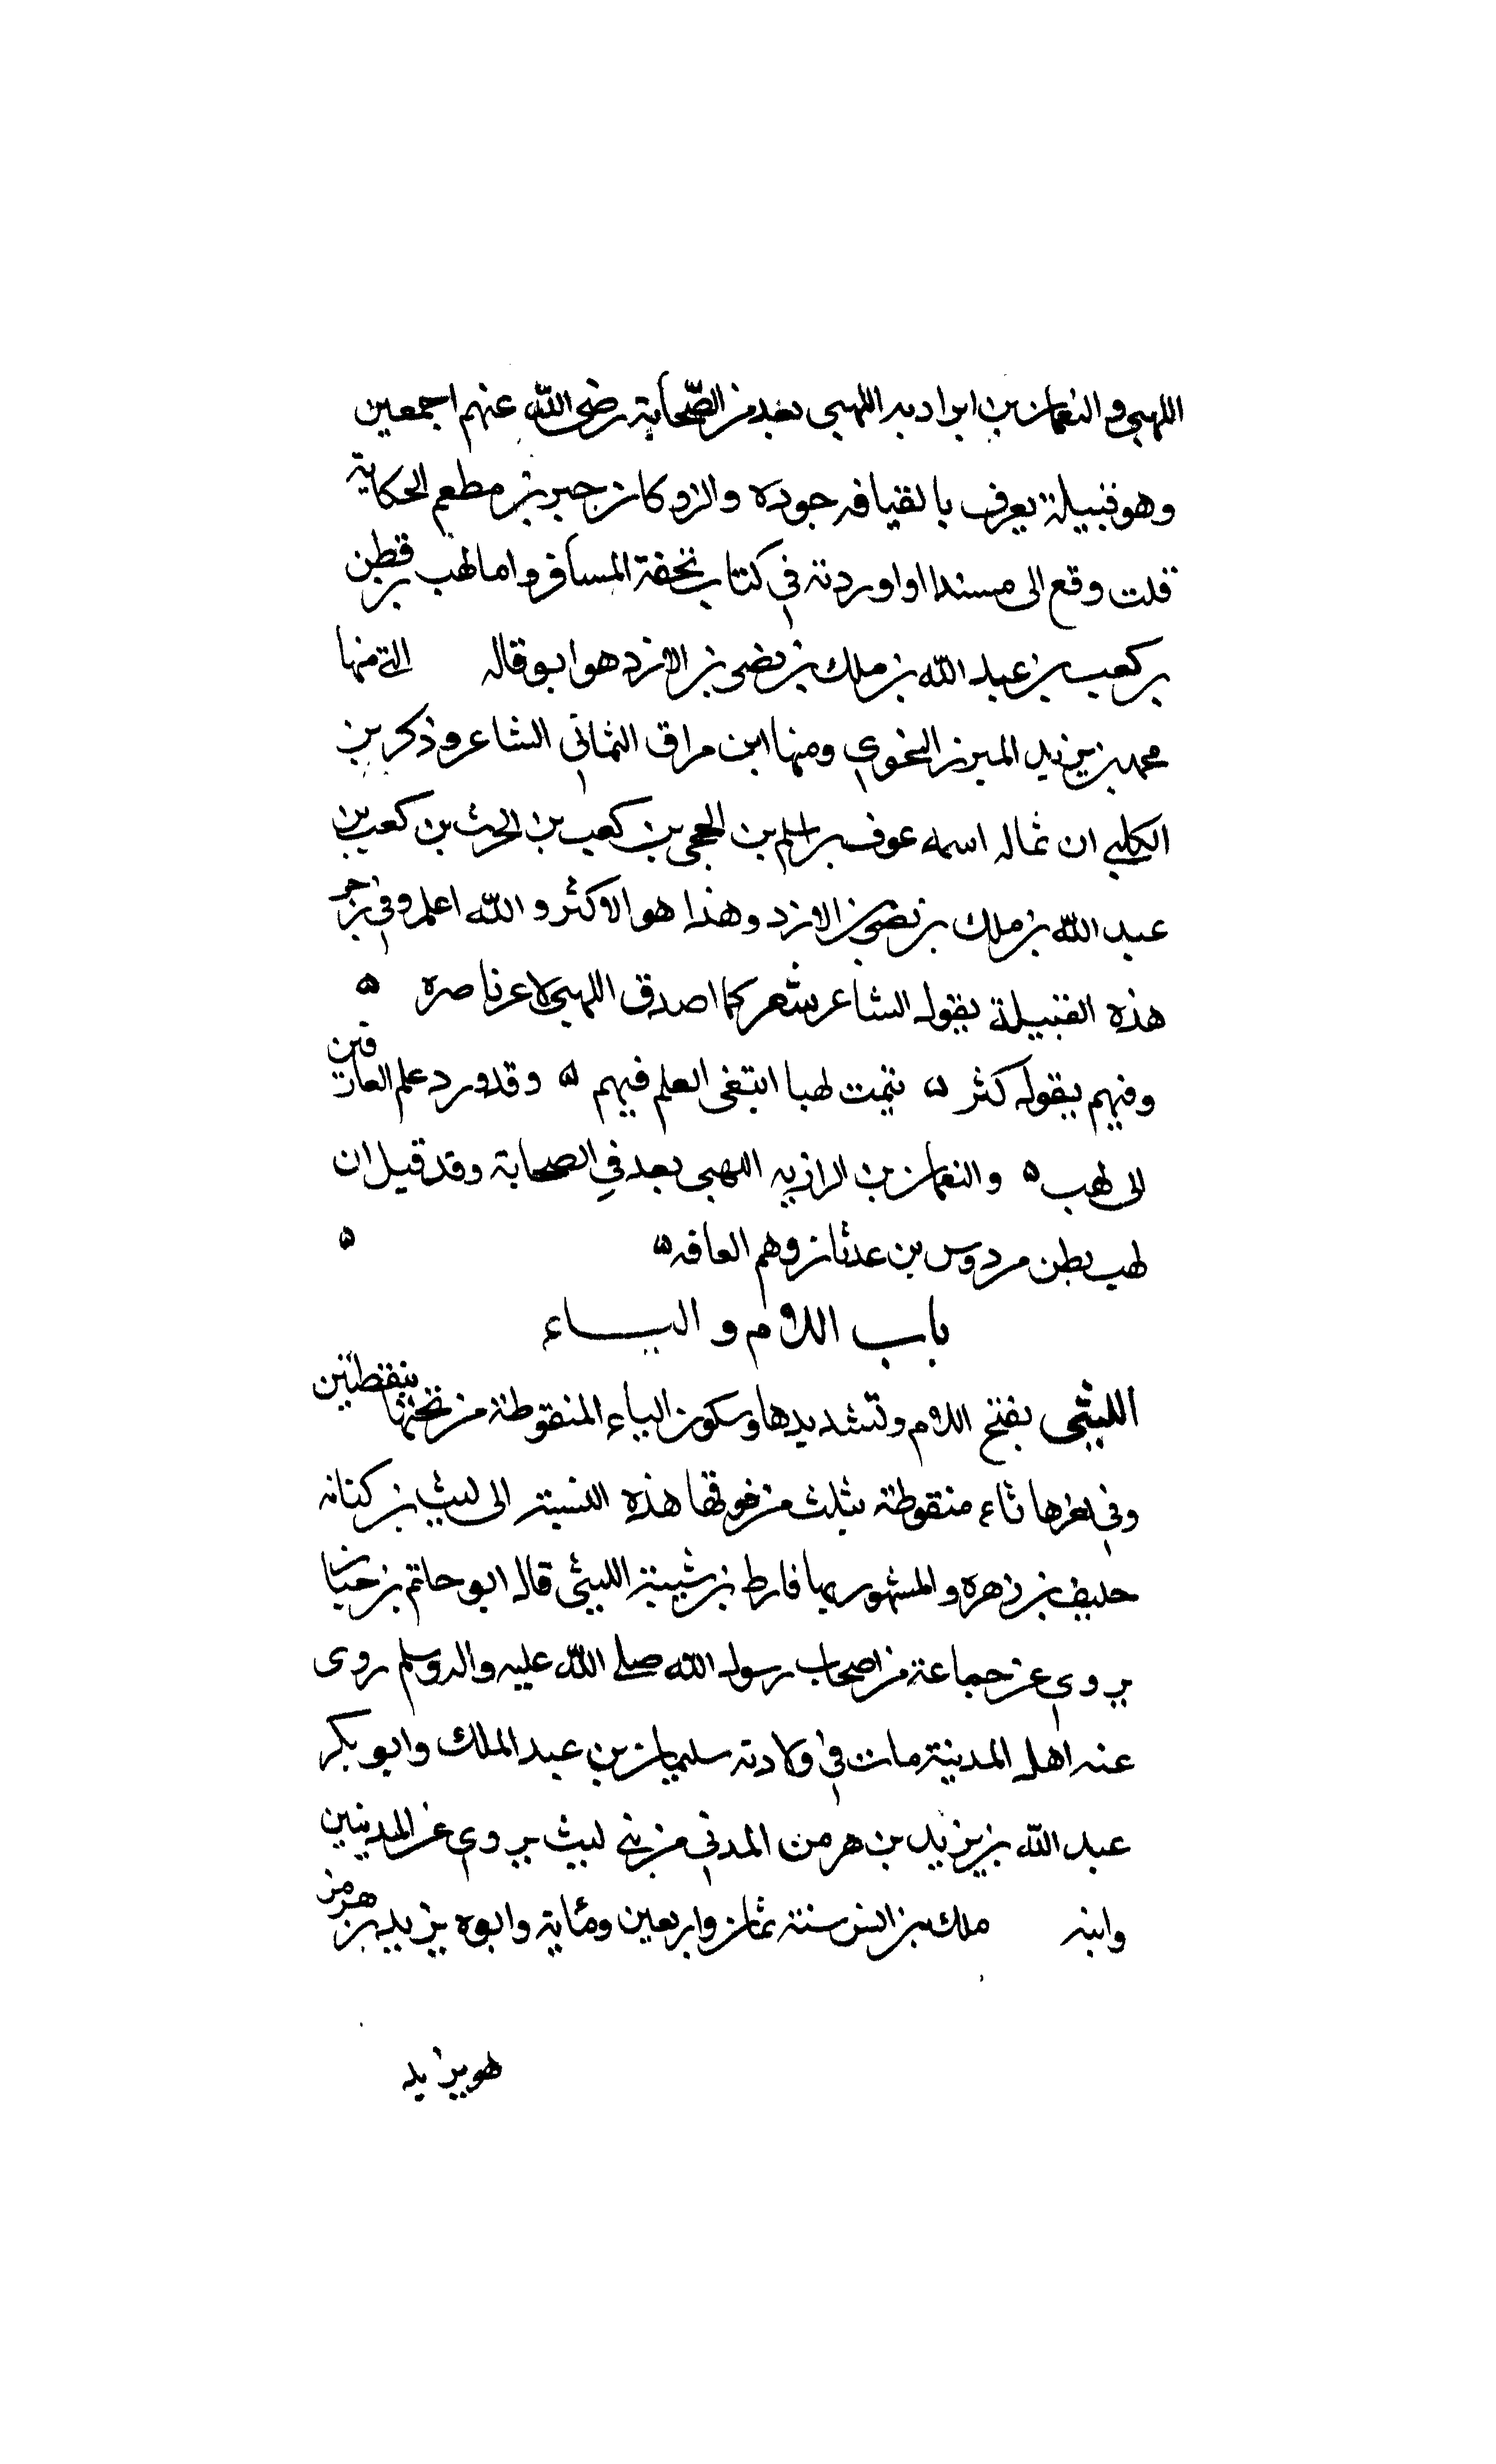 اللهبي والنعمان بن ابراديه اللهبي يعد من الصّحابة رضي اللّه عنهم اجمعين
وهو قبيلة يعرف بالقيافه جوده والزد كان جبير بن مطعم الحكاية
قلت وقع الى مسندا اوردته في كتاب تحفة المسافر واما لهب بن قطن
بن كعب بن عبد اللّه بن ملك بن نضر بن الازد هو ابو قاله الذ منها
محمد بن يزيد المبرز النحوي ومنها ابن مراق الثمانى الشاعر وذكر بن
الكلبي ان ثماله اسمه عوف بن اسلم بن الحجر بن كعب بن الحرث بن كعب بن
عبد اللّه بن ملك بن نضر بن الازد وهذا هو الاكثر واللّه اعلم وفي زجر
هذه القبيلة يقول الشاعر شعر كما اصدق اللهبي لا عز ناصره ه
وفيهم يقول كثر ه تيمت لهبا ابتغى العلم فيهم ه وقد ورد علم العارفين
الى لهب ه والنعمان بن الرازيه اللهبي يعد في الصحابة وقد قيل ان
لهب بطن من دوس بن عدثان وهم العافه ه ه
باب اللام والياء
الليثى بفتح اللام وتشديدها وسكون الياء المنقوطة من تحتها بنقطتين
وفي اخرها ثاء منقوطة بثلث من فوقها هذه النسبة الى ليث بن كنانه
حليف بن زهره والمشهور بها فارط بن شيبة الليثى قال ابو حاتم بن حبان
يروى عن جماعة من اصحاب رسول اللّه صلى اللّه عليه واله وسلم روى
عنه اهل المدينة مات في ولادته سليمان بن عبد الملك وابو بكر
عبد اللّه بن يزيد بن هرمز المدني من بني ليث يروي عن المدينين
وابنه ملك بن انس سنة ثمان واربعين ومئاية وابوه يزيد بن هرمز
هو يزيد